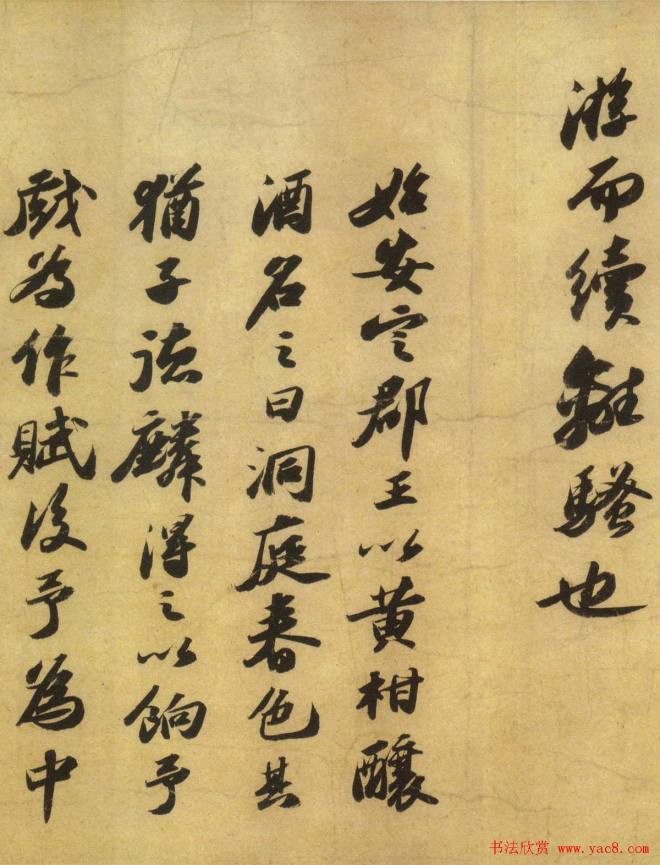 游而續離騷也
始安定郡王以黄柑釀
酒名之曰洞庭春色其
猶子德麟得之以餉予
戲為作賦後予為中
书法欣赏 www.yac8.com